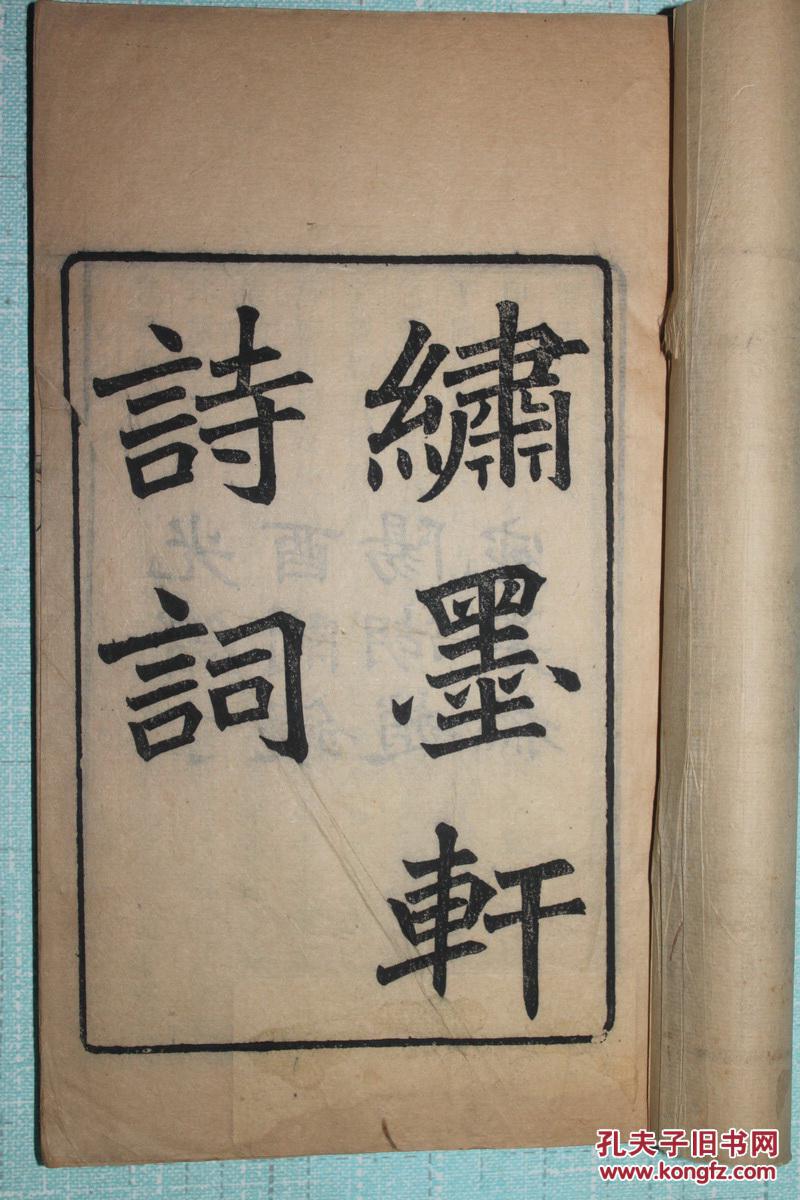 繡墨軒
詩詞
孔夫子旧书网
www.kongfz.com